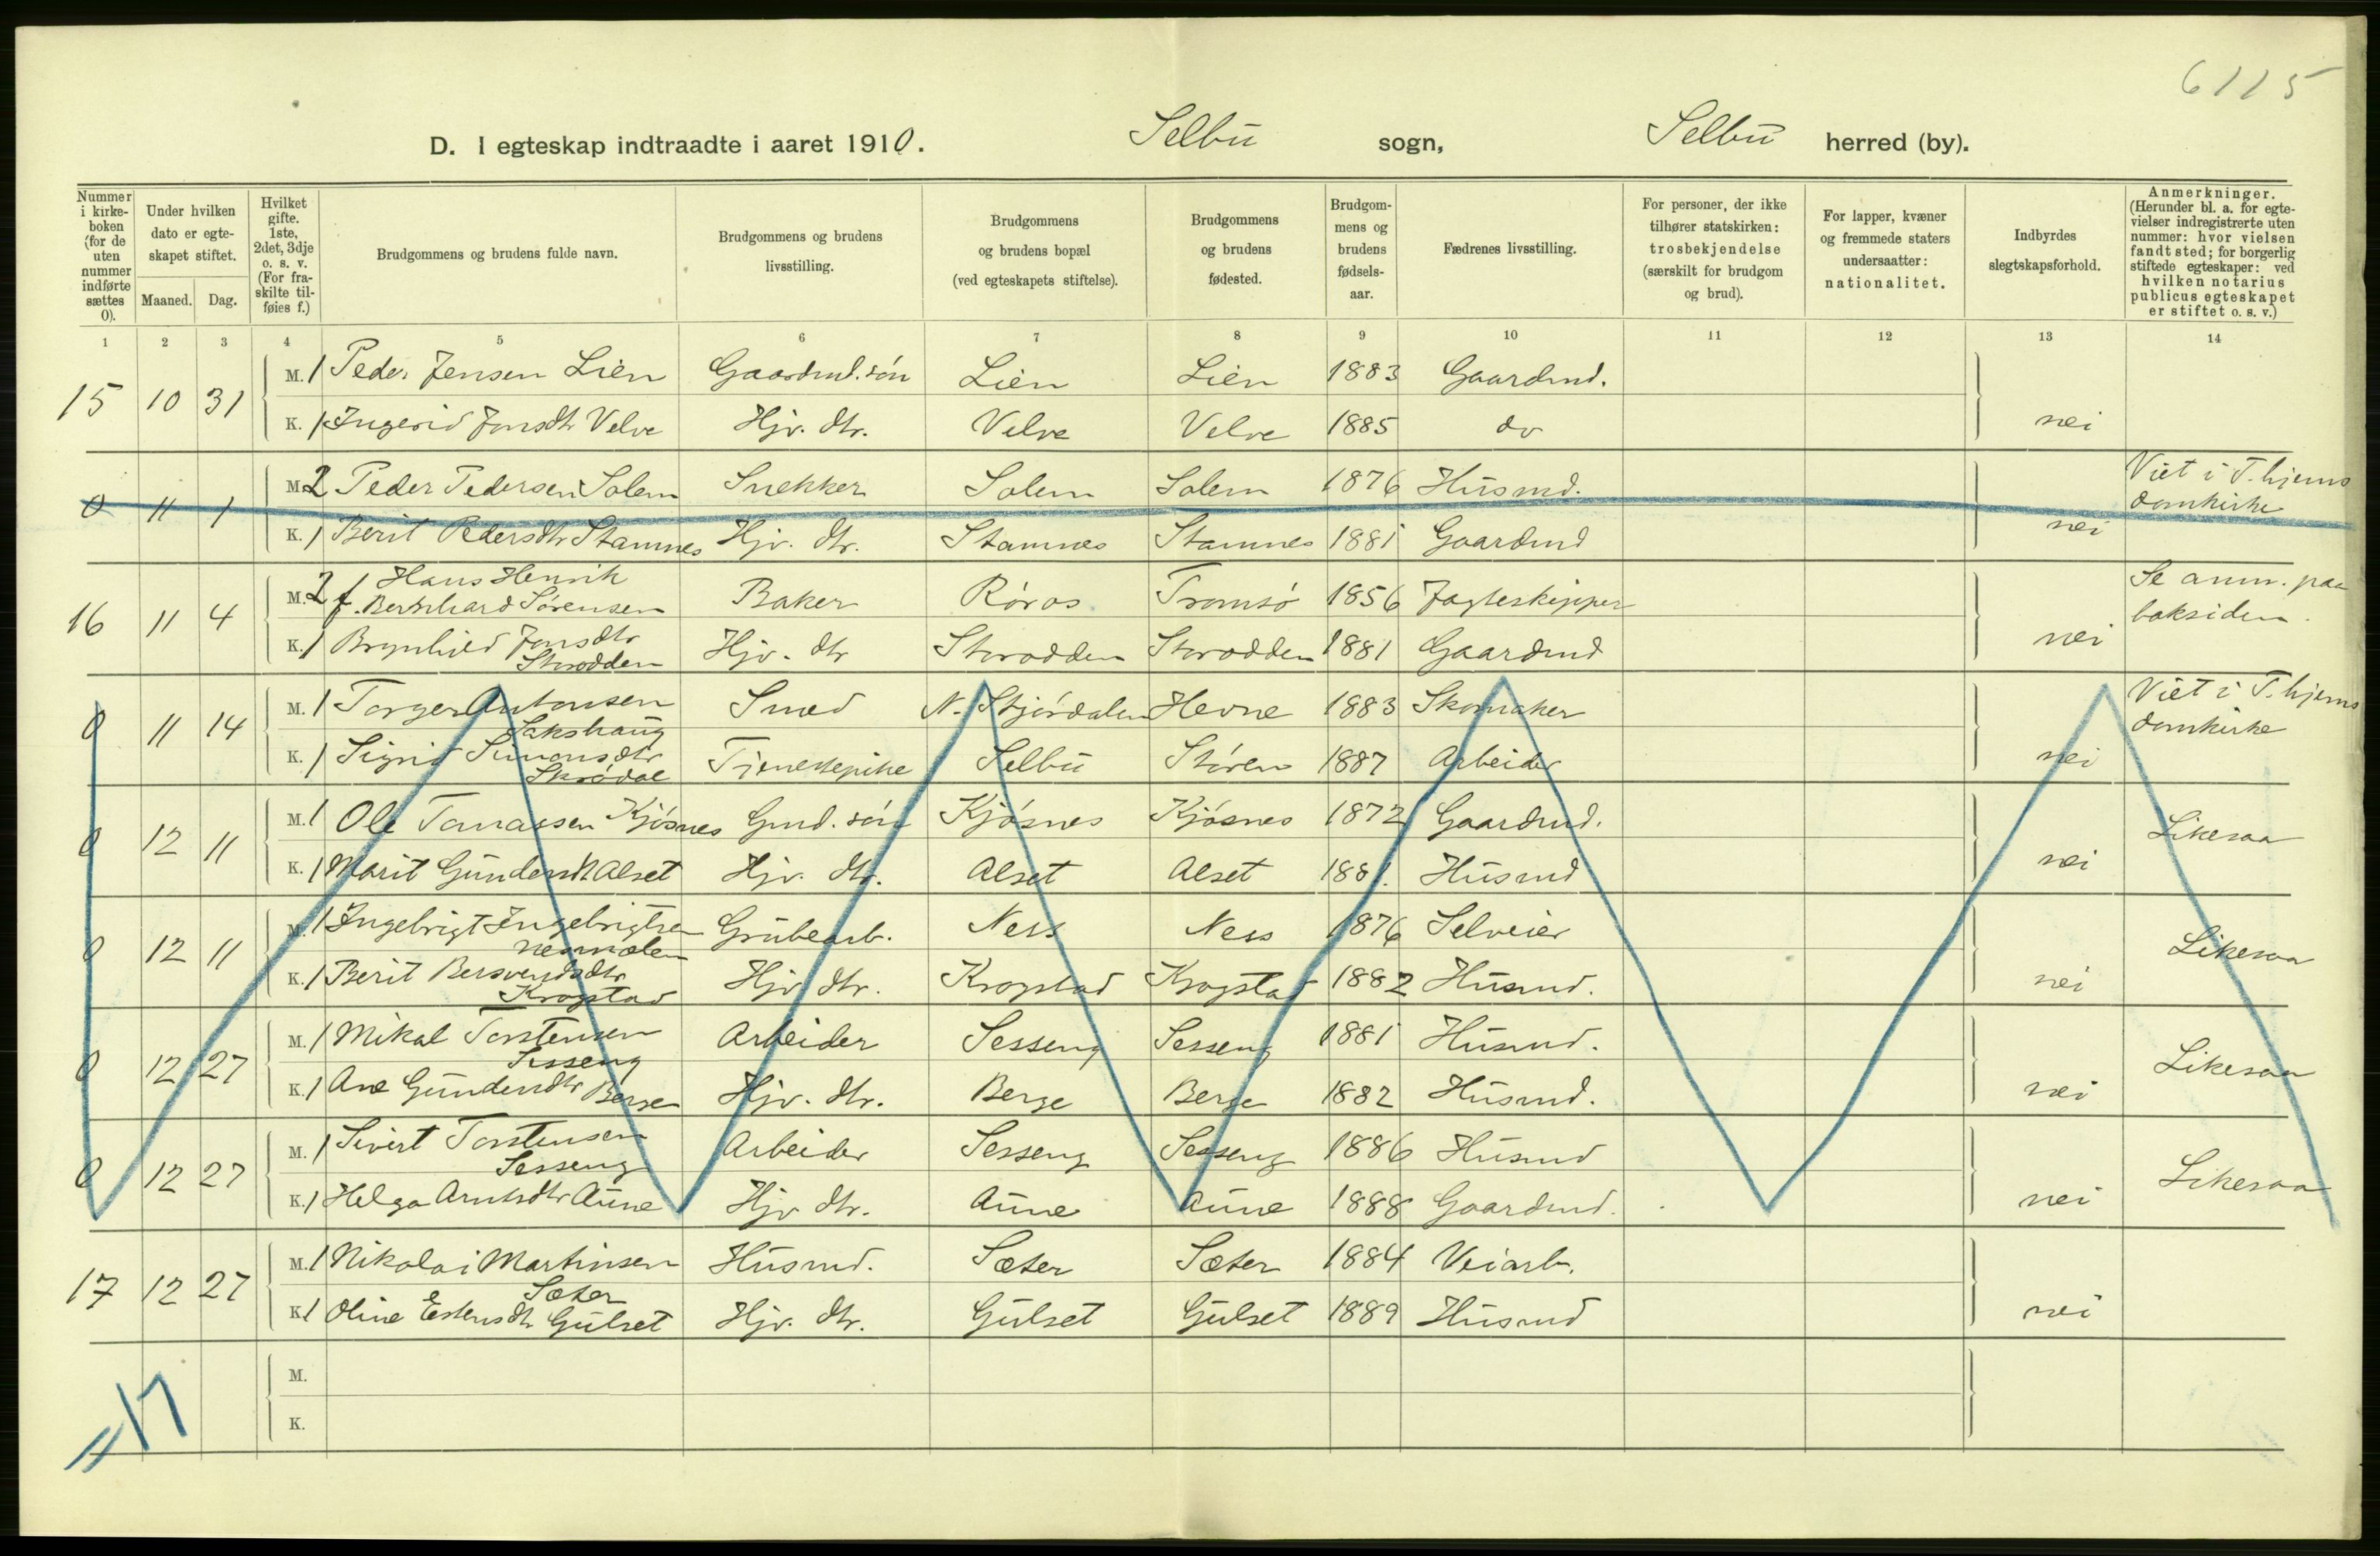 6115
D. I egteskap indtraadte i aaret 1910. Selbu sogn, Selbu herred (by).
Nummer i kirke-boken (for de uten nummer indførte sættes 0).
Under hvilken dato er egte-skapet stiftet.
Maaned. Dag.
Hvilket gifte. 1ste, 2det, 3dje o. s. v. (For fra-skilte til-føies f.)
Brudgommens og brudens fulde navn.
Brudgommens og brudens livsstilling.
Brudgommens og brudens bopæl (ved egteskapets stiftelse).
Brudgommens og brudens fødested.
Brudgom-mens og brudens fødsels-aar.
Fædrenes livsstilling.
For personer, der ikke tilhører statskirken: trosbekjendelse (særskilt for brudgom og brud).
For lapper, kvæner og fremmede staters undersaatter: nationalitet.
Indbyrdes slegtskapsforhold.
Anmerkninger. (Herunder bl. a. for egte-vielser indregistrerte uten nummer: hvor vielsen fandt sted; for borgerlig stiftede egteskaper: ved hvilken notarius publicus egteskapet er stiftet o. s. v.)
1 2 3 4 5 6 7 8 9 10 11 12 13 14
15 10 31 M. 1 Peder Jensen Lien Gaardmd. søn Lien Lien 1883 Gaardmd.
K. 1 Ingerid Jonsdtr Velve Hjv. dtr. Velve Velve 1885 do nei
0 11 1 M. 2 Peder Pedersen Solem Snekker Solem Solem 1876 Husmd. Viet i T.hjems domkirke
K. 1 Berit Pedersdtr Stamnes Hjv. dtr. Stamnes Stamnes 1881 Gaardmd nei
16 11 4 M. 2 f. Hans Henrik Bernhard Sørensen Baker Røros Tromsø 1856 Jagteskipper Se anm. paa baksiden.
K. 1 Brynhild Jonsdtr Storodden Hjv. dtr Storodden Storodden 1881 Gaardmd nei
0 11 14 M. 1 Torger Antonsen Sakshaug Smed N. Stjørdalen Hevne 1883 Skomaker Viet i T.hjems domkirke
K. 1 Sigrid Simonsdtr Tjenestepike Selbu Støren 1887 Arbeider nei
0 12 11 M. 1 Ole Tomassen Kjøsnes Gmd. søn Kjøsnes Kjøsnes 1872 Gaardmd. Likesaa
K. 1 Marit Gundersdt. Alset Hjv. dtr. Alset Alset 1881. Husmd nei
0 12 11 M. 1 Ingebrigt Ingebrigtsen Nesmoen Grubearb. Ness Ness 1876 Selveier Likesaa
K. 1 Berit Bersvendsdtr Krogstad Hjv dtr. Krogstad Krogstad 1882 Husmd. nei
0 12 27 M. 1 Mikal Torstensen Sesseng Arbeider Sesseng Sesseng 1881 Husmd. Likesaa
K. 1 Ane Gundersdtr Berge Hjv. dtr. Berge Berge 1882 Husmd. nei
0 12 27 M. 1 Sivert Torstensen Sesseng Arbeider Sesseng Sesseng 1886 Husmd Likesaa
K. 1 Helga Arntsdtr Aune Hjv dtr. Aune Aune 1888 Gaardmd. nei
17 12 27 M. 1 Nikolai Martinsen Sæter Husmd. Sæter Sæter 1884 Veiarb.
K. 1 Oline Estensdtr Gulset Hjv. dtr. Gulset Gulset 1889 Husmd nei
M.
K.
17